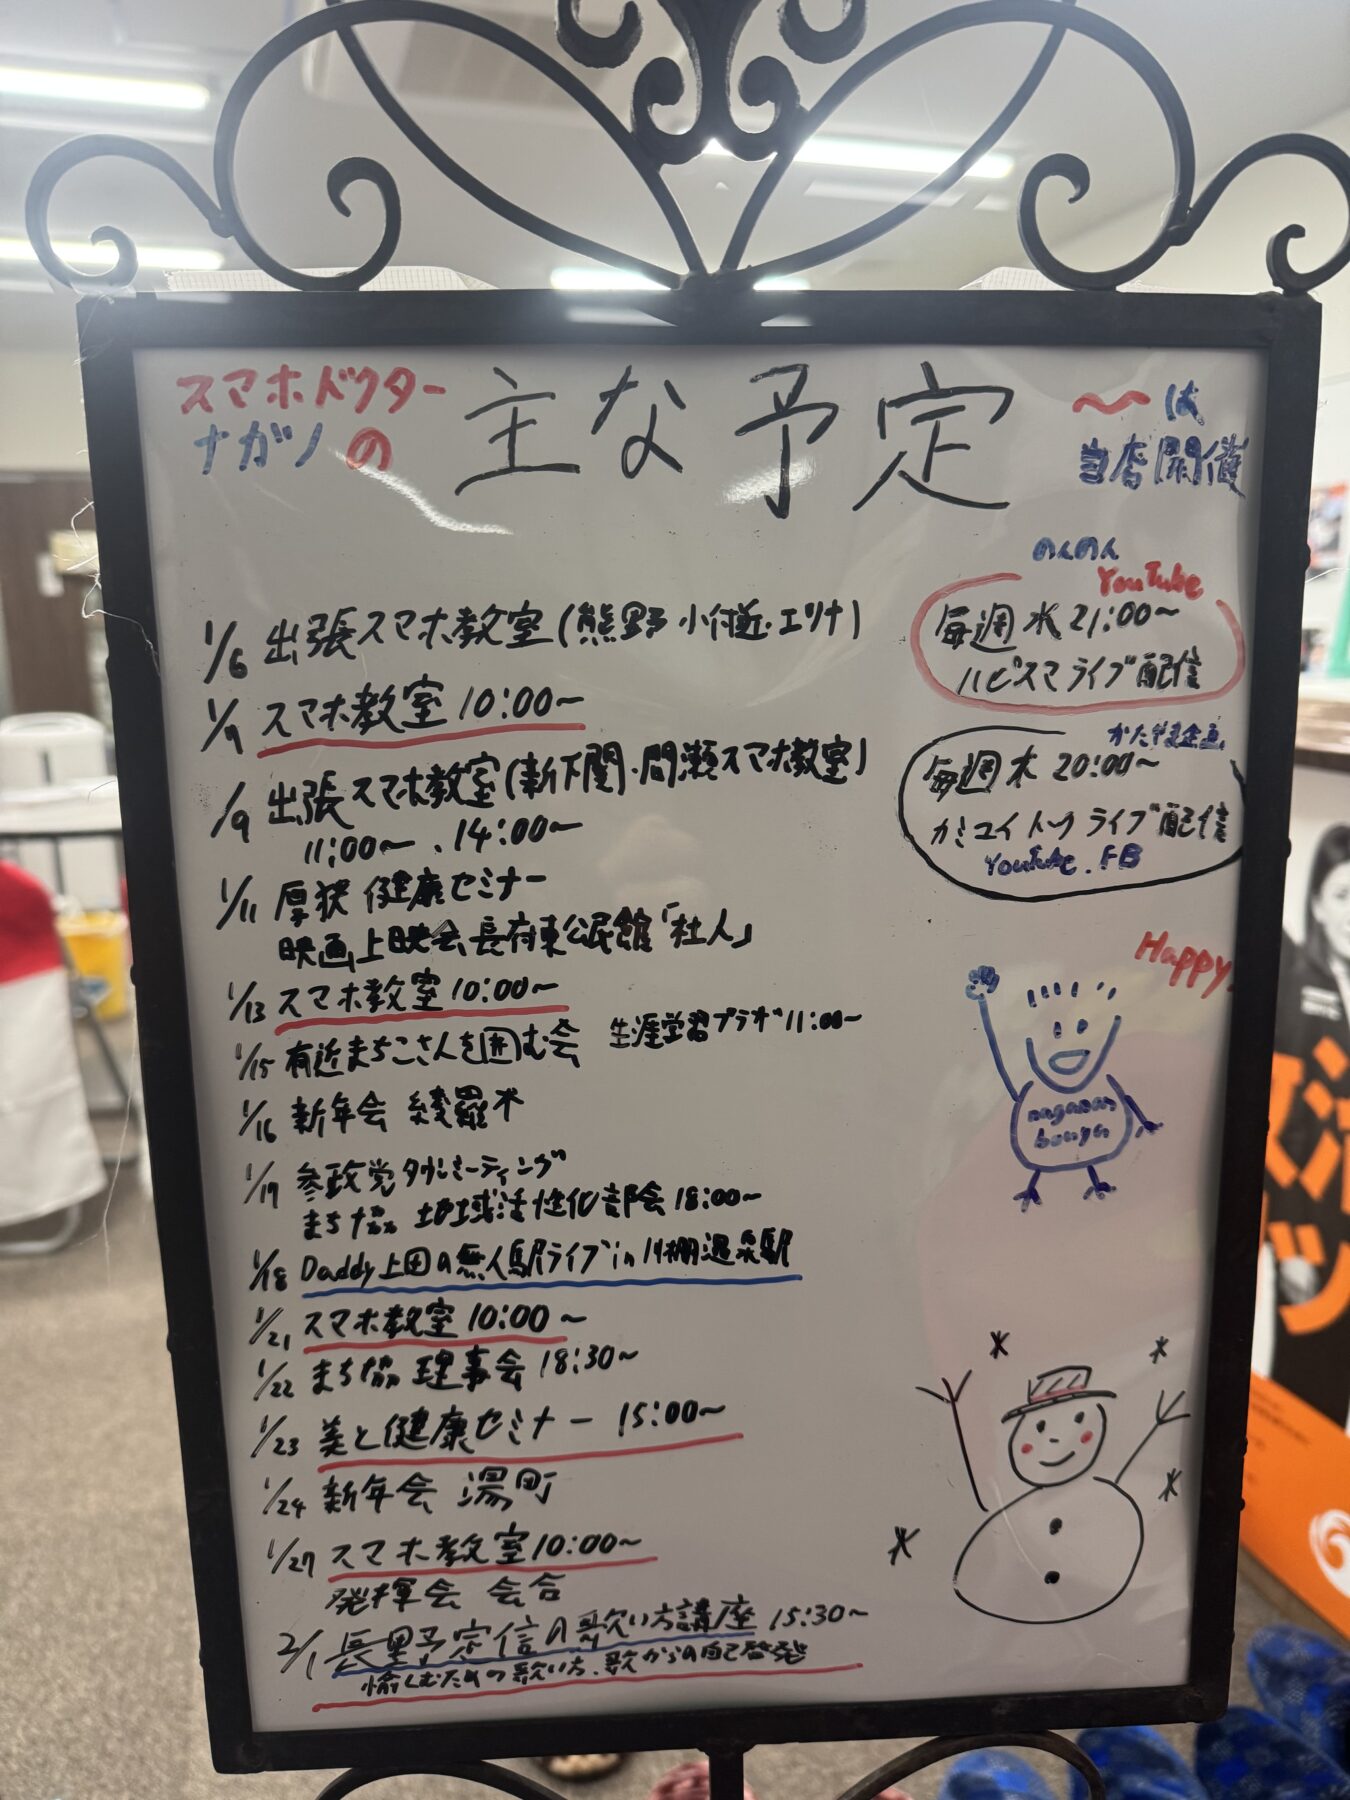 スマホドクター
ナガノの
主な予定
〜は
当店開催
1/6 出張スマホ教室(熊野小付近・エリナ)
スマホ教室 10:00〜
1/9 出張スマホ教室(新下関・間瀬スマホ教室)
11:00〜、14:00〜
1/11 厚狭 健康セミナー
映画上映会 長府東公民館「杜人」
1/13 スマホ教室 10:00〜
1/15 有近まちこさんを囲む会 生涯学習プラザ 11:00〜
1/16 新年会 綾羅木
1/17 参政党タウンミーティング
まち協 地域活性化部会 18:00〜
1/18 Daddy上田の無人駅ライブ in 川棚温泉駅
1/21 スマホ教室 10:00〜
1/22 まち協 理事会 18:30〜
1/23 美と健康セミナー 15:00〜
1/24 新年会 湯町
1/27 スマホ教室 10:00〜
発揮会 会合
2/1 長野予定信の歌い方講座 15:30〜
愉しむための歌い方、歌からの自己啓発
のんのん
YouTube
毎週水 21:00〜
ハピスマライブ配信
かたやま企画
毎週木 20:00〜
カミユイトークライブ配信
YouTube. FB
Happy